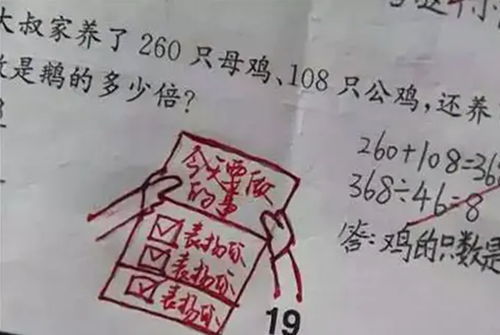 大叔家养了260只母鸡、108只公鸡,还养
是鹅的多少倍?
260+108=36
368÷46=8
答:鸡的只数是
今天要做
的事
表扬你
表扬你
表扬你
19